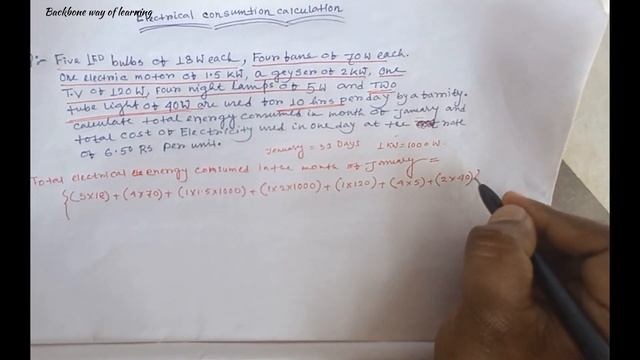 Backbone way of learning
Electrical consumtion calculation
Q:- Five LED bulbs of 18W each, Four fans of 70W each.
One electric motor of 1.5 KW, a geyser of 2KW, one
T.V of 120W, Four night lamps of 5W and Two
tube light of 40W are used for 10 hrs per day by a family.
calculate total energy consumed in month of january and
total cost of Electricity used in one day at the rate
of 6.50 Rs per unit.
january = 31 Days 1 KW = 1000 W
Total electrical energy consumed in the month of january =
{(5x18)+(4x70)+(1x1.5x1000)+(1x2x1000)+(1x120)+(4x5)+(2x40)}